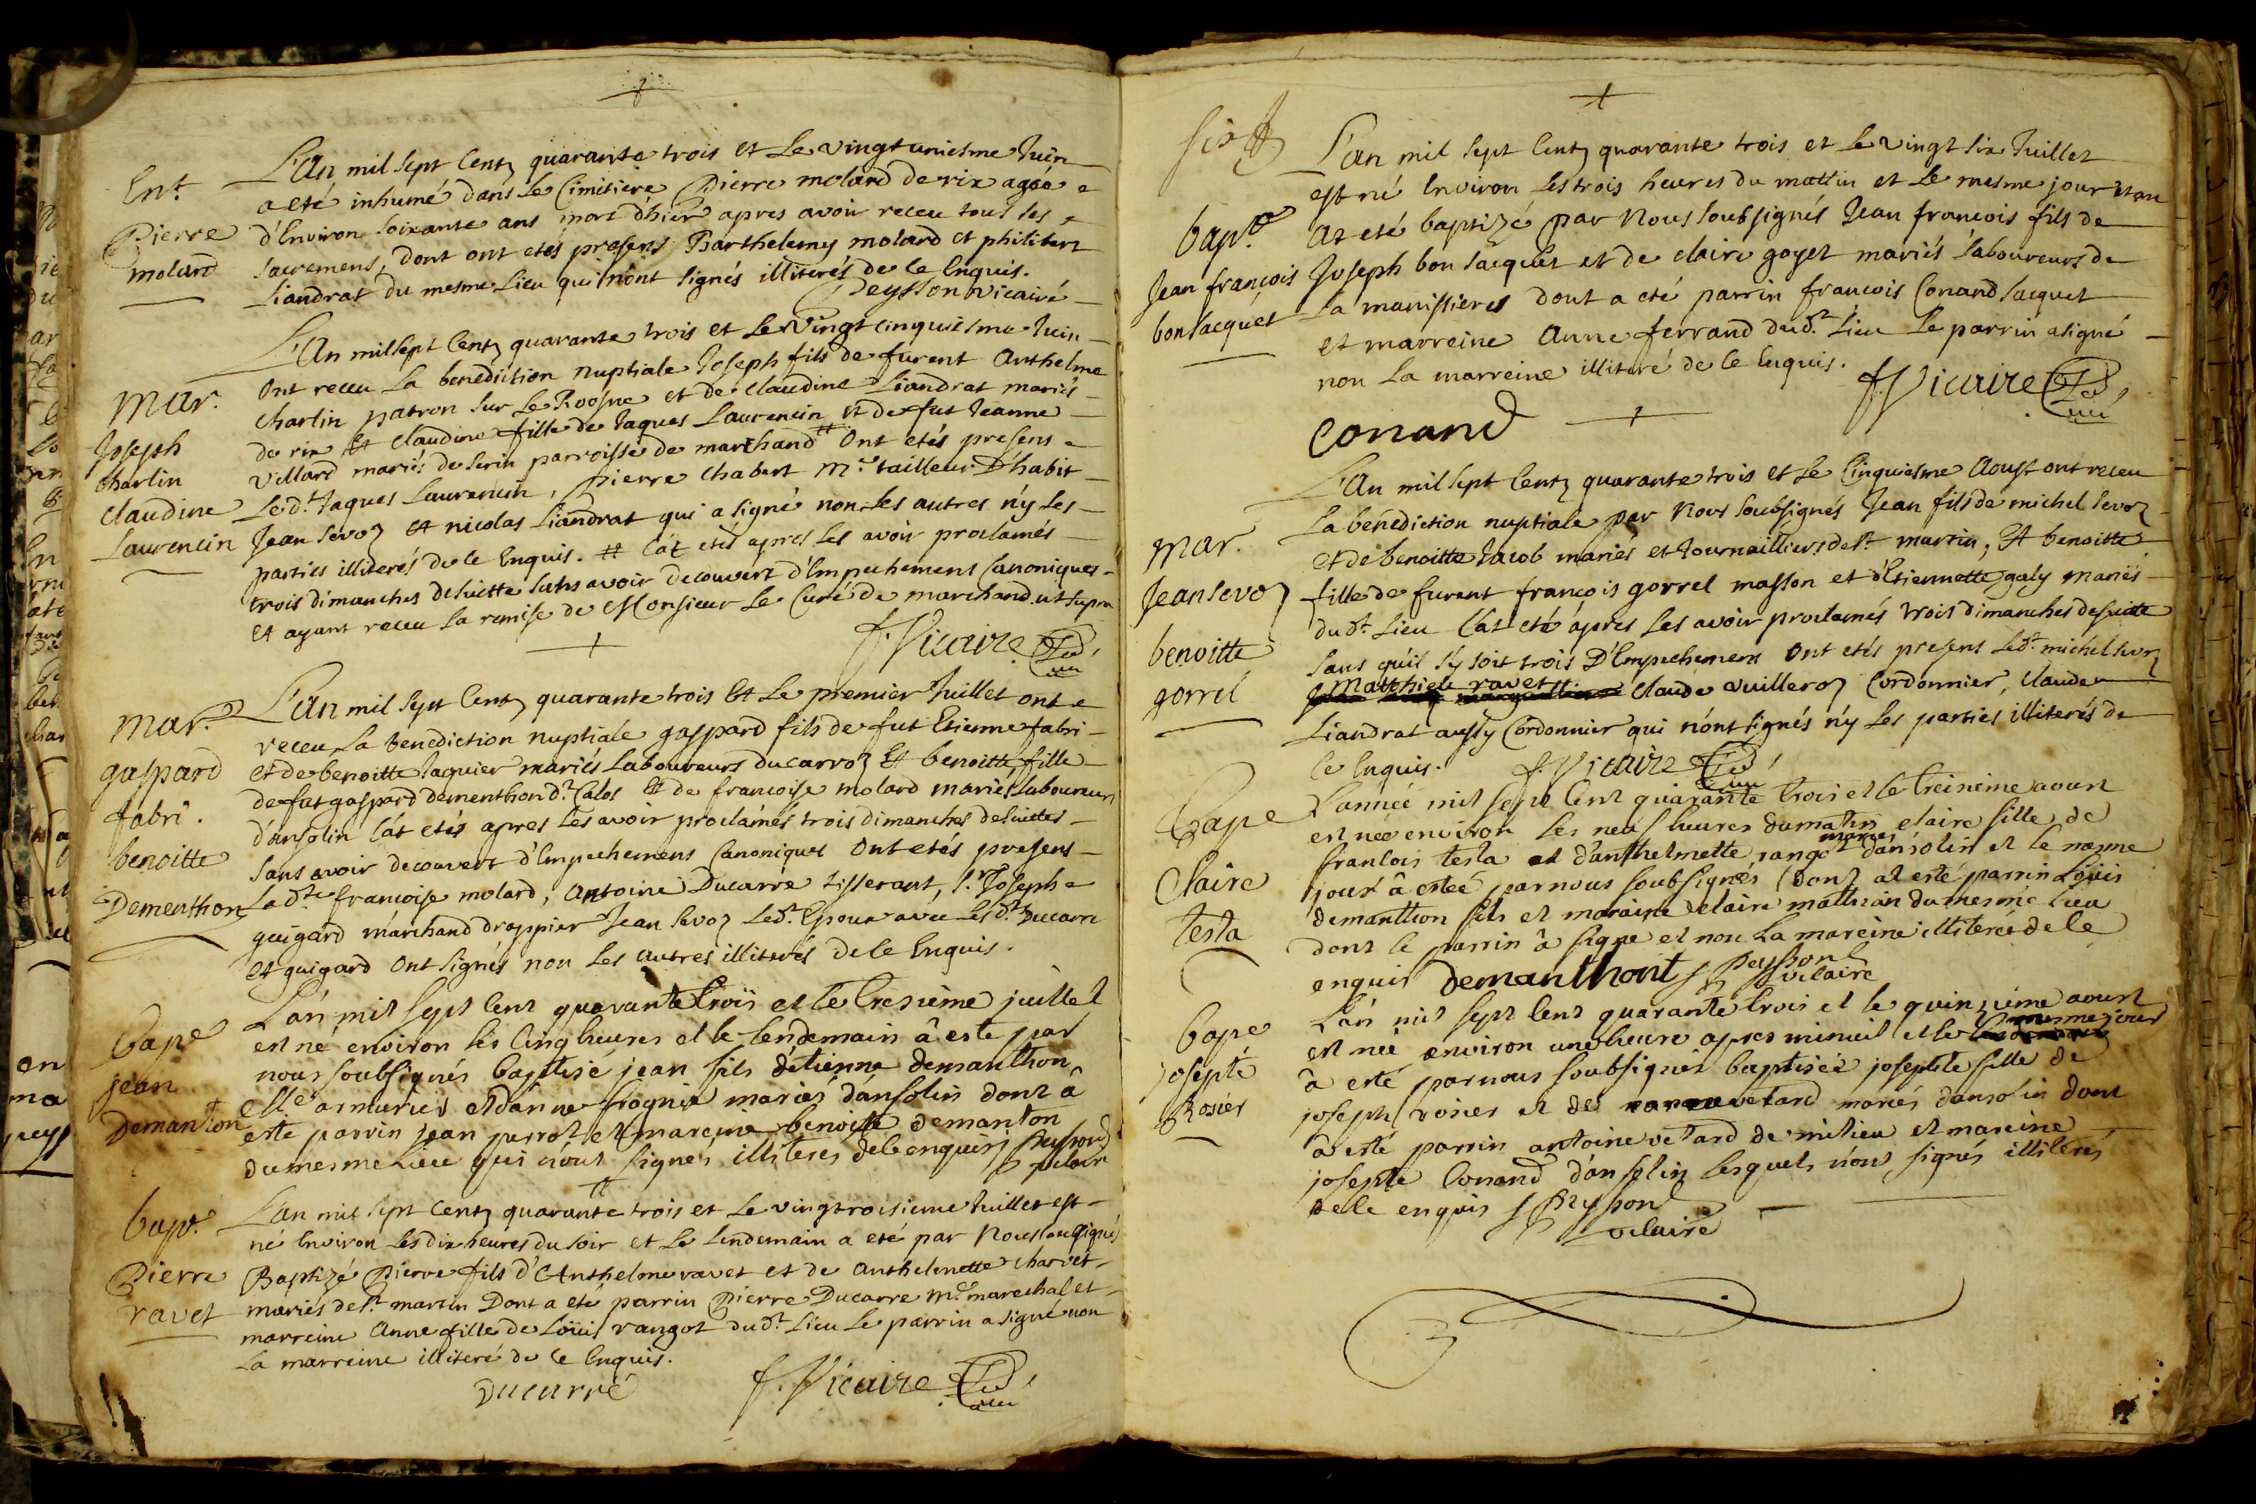 Ent.
Pierre
molard
L'An mil sept Centz quarante trois et Le vingtuniesme Juin
a eté inhumé dans Le Cimitiere Pierre molard de rix agéé
d'Environ soixante ans mort d'hier apres avoir receu tous les
sacremens, dont ont etés presens Barthelemy molard et philibert
Liandrat du mesme Lieu qui n'ont signés illiterés de Ce Enquis.
Peysson vicaire
mar.
Joseph
charlin
Claudine
Laurencin
L'An mil sept Centz quarante trois et Le vingtcinquiesme Juin
Ont receu La benediction nuptiale Joseph fils de furent Anthelme
charlin patron sur Le Roosne et de Claudine Liandrat mariés
de rix Et Claudine fille de Jaques Laurencin et de fut Jeanne
Villard mariés de serin parroisse de marchand # Ont etés presens
Led.t Jaques Laurencin, Pierre Chabert M.e tailleur D'habit
Jean sevoz Et nicolas Liandrat qui a signé non Les autres n'y Les
parties illiterés de Ce Enquis. # C'at etés apres Les avoir proclamés
trois dimanches de suitte sans avoir decouvert d'Empechemens Canoniques
Et ayant receu La remise de Monsieur Le Curé de marchand. ut supra
f. Vicaire
mar.
gaspard
fabri.
benoitte
Dementhon
L'An mil sept Centz quarante trois Et Le premier Juillet ont
receu La benediction nuptiale gaspard fils de fut Etienne fabri
et de benoitte Jaquier mariés Laboureurs du carroz Et benoitte fille
de fut gaspard dementhon d.t Calos Et de francoise molard mariés Laboureurs
d'ansolin C'at etés apres Les avoir proclamés trois dimanches de suittes
sans avoir decouvert d'Empechemens Canoniques Ont etés presens
La d.te francoise molard, Antoine Ducarre tisserant, s.r Joseph
guigard marchand drappier Jean Sevoz Led.t Epoux avec Les d.ts Ducarre
Et guigard Ont signés non Les autres illiterés de Ce Enquis.
bape
jean
Demanton
L'an mil sept cent quarante trois et le tresième juillet
est né environ les cinq heures et le lendemain a esté par
nous soubsignés baptisé jean fils d'étienne demanthon
armurier et d'anne frognie mariés d'ansolin dont a
esté parrin jean perrot et mareine benoitte demanton
du mesme Lieu qui n'ont signés illiterés de ce enquis Peysson
vicaire
bapt.
Pierre
ravet
L'an mil sept Centz quarante trois et Le vingtroisieme Juillet est
né Environ Les dix heures du soir et Le Lendemain a eté par Nous soussignés
Baptizé Pierre fils d'Anthelme ravet et de Anthelmette charvet
mariés de s.t martin Dont a eté parrin Pierre Ducarre m.e marechal et
marreine Anne fille de Loüis rangot dud.t Lieu Le parrin a signé non
La marreine illiteré de Ce Enquis.
Ducarré f. Vicaire
six
bapt.
Jean françois
bon Jacquet
L'an mil sept Centz quarante trois et Le vingt six Juillet
est né Environ Les trois heures du mattin et Le mesme jour
at eté baptizé par Nous soubsignés Jean francois fils de
Joseph bon Jacquet et de claire goyet mariés Laboureurs de
La manissieres dont a eté parrin francois Conand Jacquet
et marreine Anne ferrand dud.t Lieu Le parrin a signé
non La marreine illiteré de Ce Enquis.
f. Vicaire
Conand
mar.
Jean sevoz
benoitte
gorrel
L'An mil sept Centz quarante trois et Le Cinquiesme Aoust ont receu
La benediction nuptiale par Nous soubsignés Jean fils de michel sevoz
et de benoitte Jacob mariés et Journailliers de s.t martin, Et benoitte
fille de furent françois gorrel masson et d'Etiennette galy mariés
dud.t Lieu C'at eté apres Les avoir proclamés trois dimanches de suitte
sans qu'il s'y soit trois D'Empechemens Ont etés presens Led.t michel sevoz
Matthieu ravet Claude vuilleroz Cordonnier, Claude
Liandrat aussy Cordonnier qui n'ont signés n'y Les parties illiterés de
Ce Enquis. f. Vicaire
Bape
Claire
Testa
L'année mil sept cent quarante trois et le treisieme aoust
est néé environ les neuf heures du matin claire fille de
francois testa et d'anthelmette rangot mariés d'ansolin et le mesme
jour a estéé par nous soubsignés dont at esté parrin Loüis
demantthon fils et maraine claire mathian du mesme Lieu
dont le parrin a signe et non La mareine illiteréé de ce
enquis Demanthont Peysson
vicaire
bape
josepte
Rosier
L'an mil sept cent quarante trois et le quinzieme aoust
est néé environ une heure apres minuit et le mesme jour
a esté par nous soubsignés baptiséé josepte fille de
joseph rosier et de vetard mariés d'ansolin dont
a esté parrin antoine vetard de milieu et mareine
josepte Conand d'ansolin lesquels n'ont signés illiterés
de ce enquis Peysson
vicaire